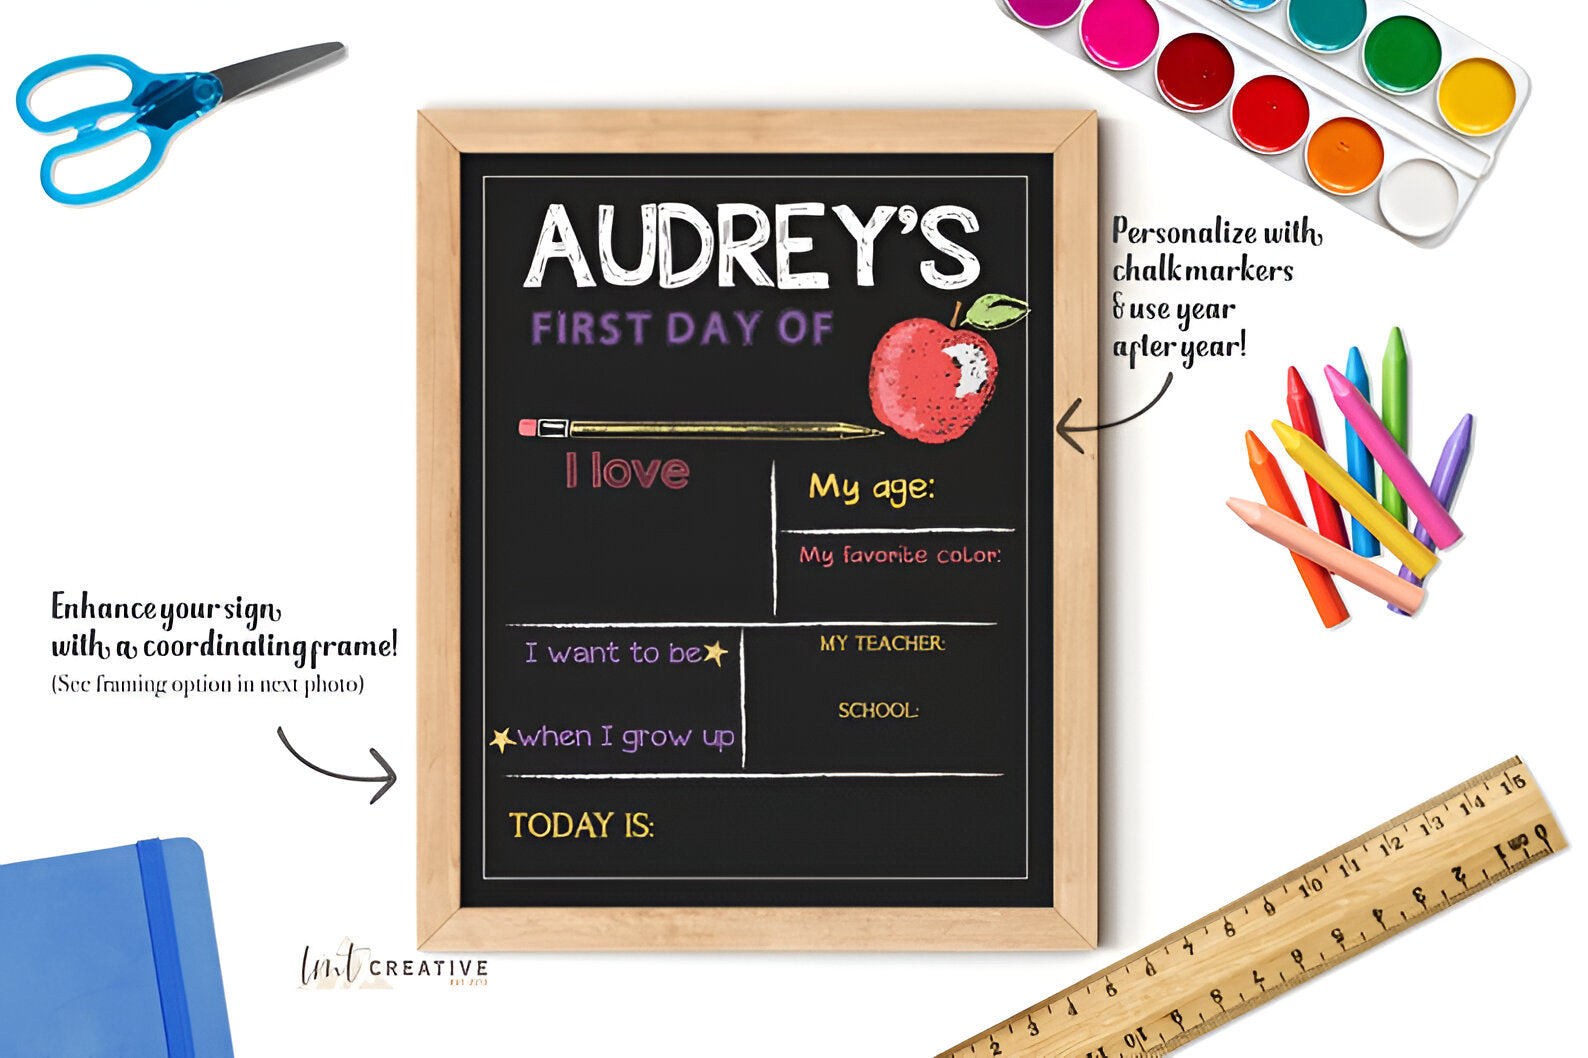 AUDREY'S
FIRST DAY OF
I love
My age:
My favorite color:
I want to be
when I grow up
MY TEACHER:
SCHOOL:
TODAY IS:
Personalize with
chalk markers
& use year
after year!
Enhance your sign
with a coordinating frame!
(See framing option in next photo)
lmt CREATIVE
15 14 13 12 11 10 9 8 7 6 5 4 3 2
0 cm 1 2 3 4 5 6 7 8 9 10 11